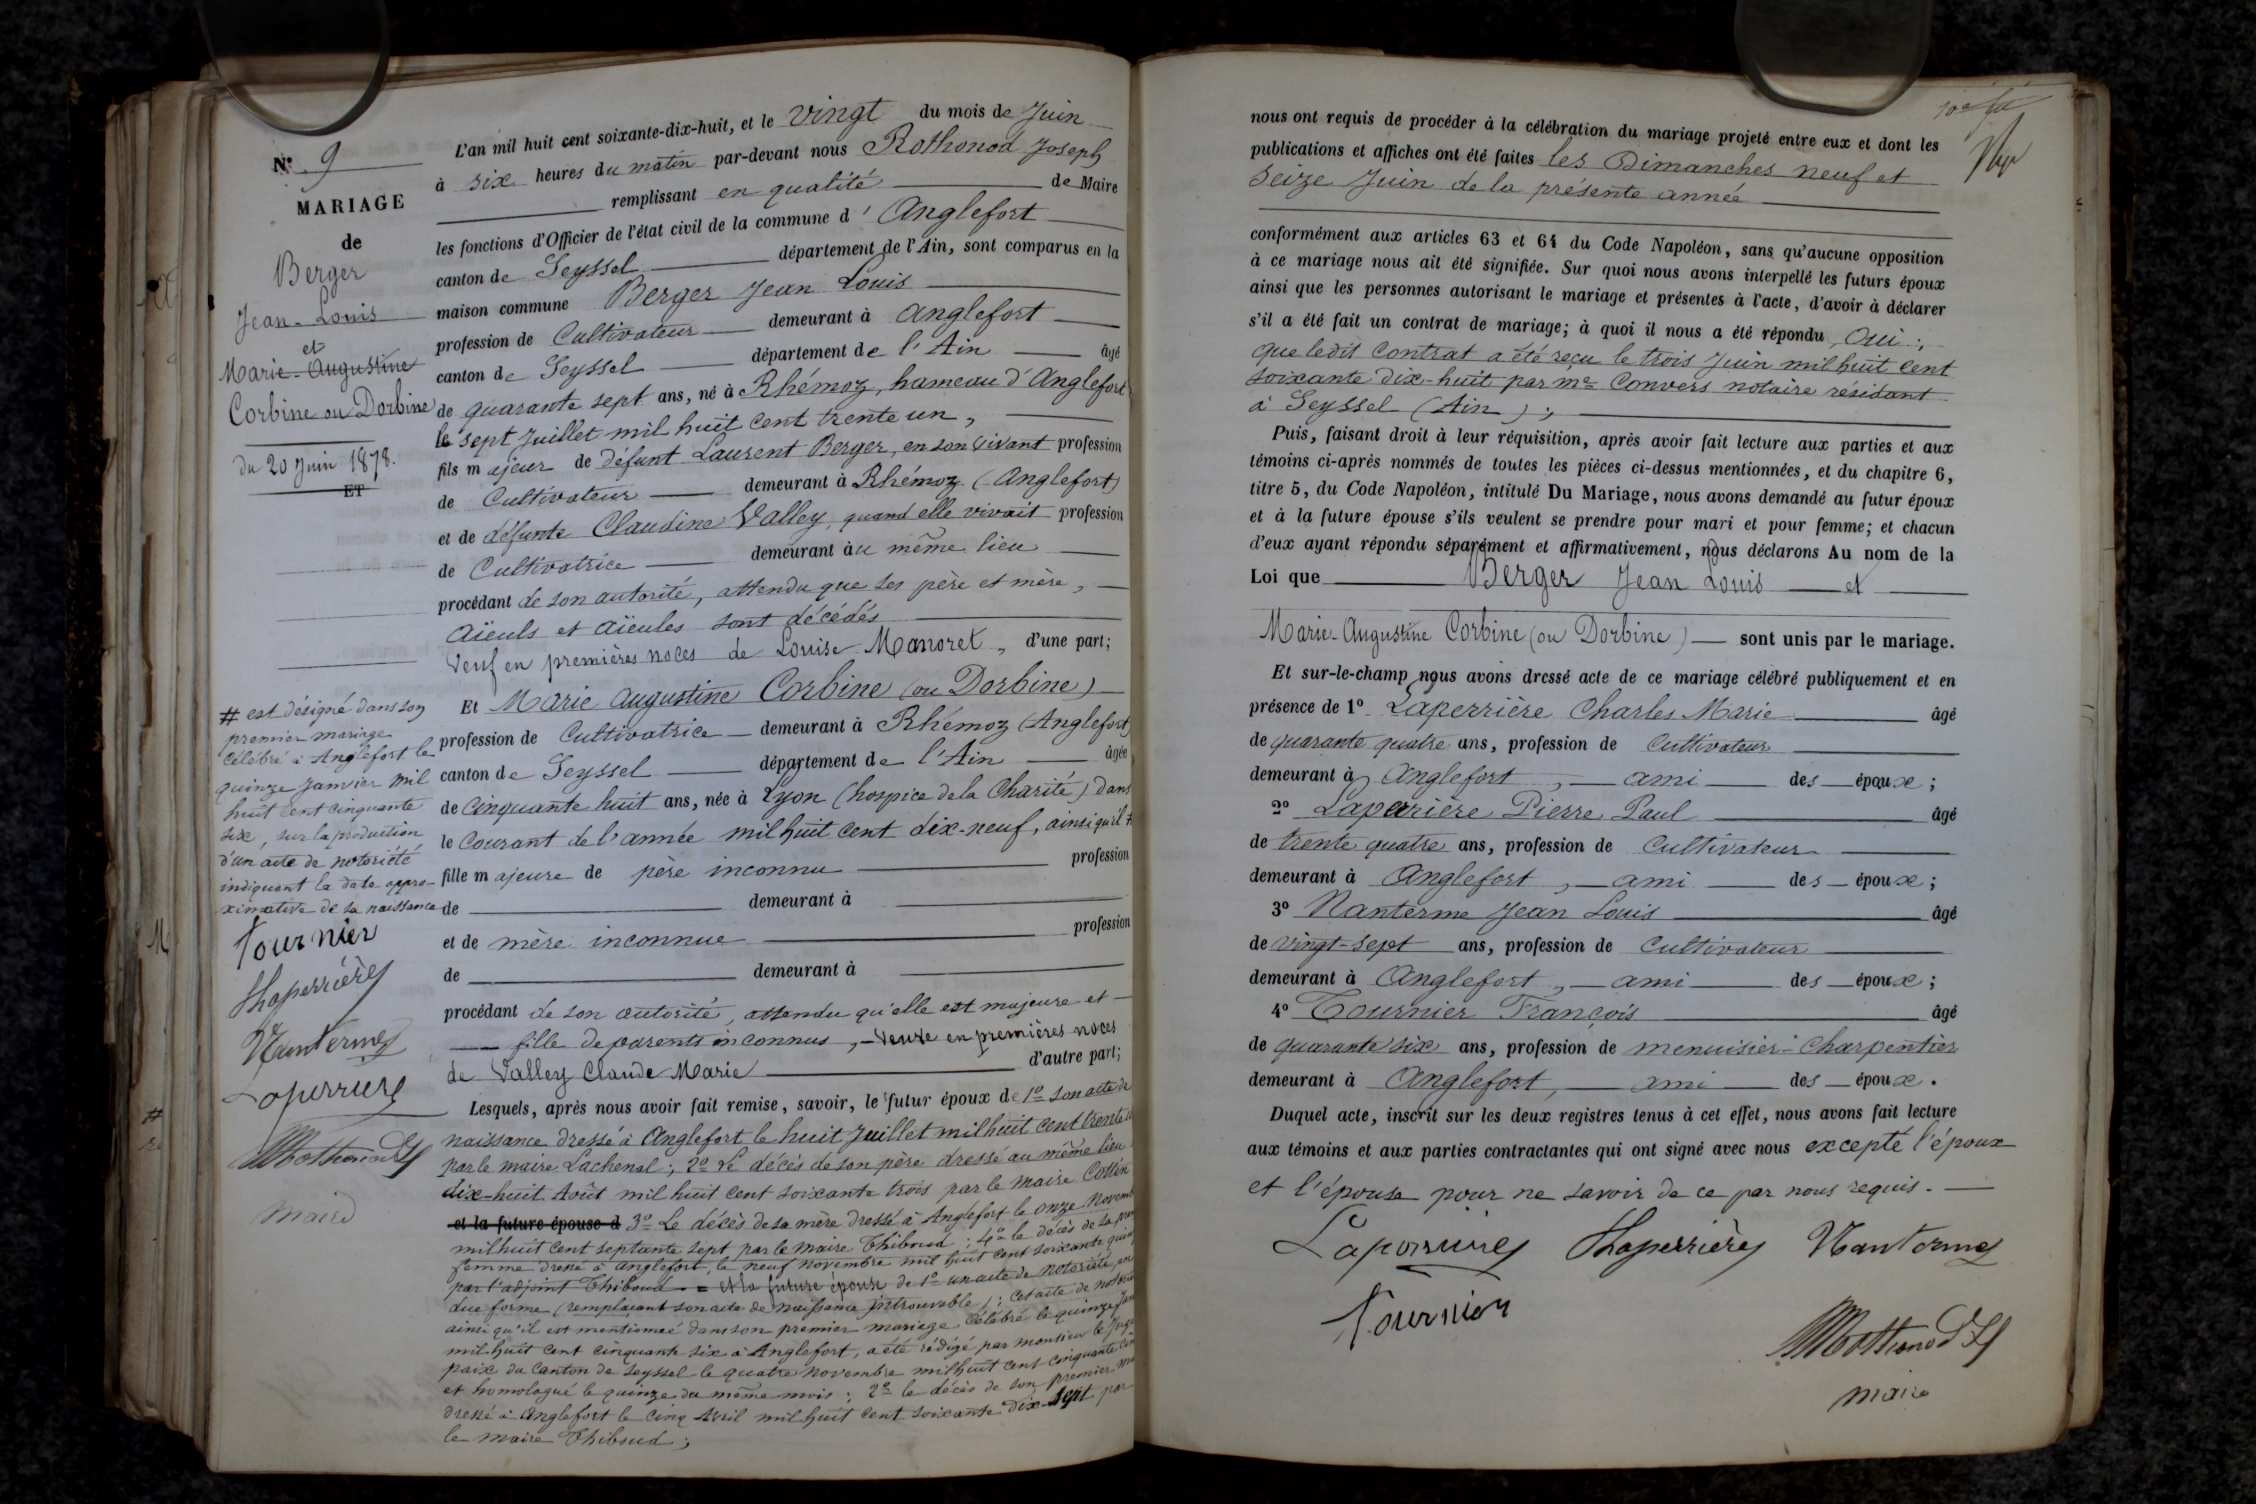 N° 9
MARIAGE
de
Berger
Jean-Louis
et
Marie-Augustine
Corbine ou Dorbine
du 20 Juin 1878.
ET
# est désigné dans son
premier mariage
célébré à Anglefort le
quinze Janvier mil
huit cent cinquante
six, sur la production
d'un acte de notoriété
indiquant la date appro-
ximative de sa naissance
Tournier
Laperrière
Nanterme
Laperrière
Rothonod
maire
L'an mil huit cent soixante-dix-huit, et le vingt du mois de Juin
à six heures du matin par-devant nous Rothonod Joseph
remplissant en qualité de Maire
les fonctions d'Officier de l'état civil de la commune d'Anglefort
canton de Seyssel département de l'Ain, sont comparus en la
maison commune Berger Jean Louis
profession de Cultivateur demeurant à Anglefort
canton de Seyssel département de l'Ain âgé
de quarante sept ans, né à Rhémoz, hameau d'Anglefort
le sept Juillet mil huit cent trente un,
fils majeur de défunt Laurent Berger, en son vivant profession
de Cultivateur demeurant à Rhémoz (Anglefort)
et de défunte Claudine Valley, quand elle vivait profession
de Cultivatrice demeurant au même lieu
procédant de son autorité, attendu que ses père et mère,
aïeuls et aïeules sont décédés
Veuf en premières noces de Louise Manoret, d'une part;
Et Marie Augustine Corbine (ou Dorbine)
profession de Cultivatrice demeurant à Rhémoz (Anglefort)
canton de Seyssel département de l'Ain âgée
de cinquante huit ans, née à Lyon (hospice de la Charité) dans
le courant de l'année mil huit cent dix-neuf, ainsi qu'il #
fille majeure de père inconnu profession
de demeurant à
et de mère inconnue profession
de demeurant à
procédant de son autorité, attendu qu'elle est majeure et
fille de parents inconnus, - Veuve en premières noces
de Valley Claude Marie d'autre part;
Lesquels, après nous avoir fait remise, savoir, le futur époux de 1° son acte de
naissance dressé à Anglefort le huit Juillet mil huit cent trente
par le maire Lachenal; 2° le décès de son père dressé au même lieu
dix-huit Août mil huit cent soixante trois par le maire Cottin
et la future épouse d 3° Le décès de sa mère dressé à Anglefort le onze Novem
mil huit cent septante sept par le maire Thiboud; 4° le décès de sa
femme dressé à Anglefort, le neuf novembre mil huit cent soixante
par l'adjoint Thiboud = et la future épouse de 1° un acte de notoriété en
due forme (remplaçant son acte de naissance introuvable); cet acte de
ainsi qu'il est mentionné dans son premier mariage célébré le quinze
mil huit cent cinquante six à Anglefort, a été rédigé par monsieur le Juge
paix du Canton de Seyssel le quatre novembre mil huit cent cinquante
et homologué le quinze du même mois; 2° le décès de son premier
dressé à Anglefort le cinq Avril mil huit cent soixante dix-sept par
le maire Thiboud;
nous ont requis de procéder à la célébration du mariage projeté entre eux et dont les
publications et affiches ont été faites les Dimanches neuf et
seize Juin de la présente année
conformément aux articles 63 et 64 du Code Napoléon, sans qu'aucune opposition
à ce mariage nous ait été signifiée. Sur quoi nous avons interpellé les futurs époux
ainsi que les personnes autorisant le mariage et présentes à l'acte, d'avoir à déclarer
s'il a été fait un contrat de mariage; à quoi il nous a été répondu Oui;
que ledit Contrat a été reçu le trois Juin mil huit cent
soixante dix-huit par me Convers notaire résidant
à Seyssel (Ain);
Puis, faisant droit à leur réquisition, après avoir fait lecture aux parties et aux
témoins ci-après nommés de toutes les pièces ci-dessus mentionnées, et du chapitre 6,
titre 5, du Code Napoléon, intitulé Du Mariage, nous avons demandé au futur époux
et à la future épouse s'ils veulent se prendre pour mari et pour femme; et chacun
d'eux ayant répondu séparément et affirmativement, nous déclarons Au nom de la
Loi que Berger Jean Louis et
Marie-Augustine Corbine (ou Dorbine) sont unis par le mariage.
Et sur-le-champ nous avons dressé acte de ce mariage célébré publiquement et en
présence de 1° Laperrière Charles Marie âgé
de quarante quatre ans, profession de Cultivateur
demeurant à Anglefort, ami des époux;
2° Laperrière Pierre Paul âgé
de trente quatre ans, profession de Cultivateur
demeurant à Anglefort, ami des époux;
3° Nanterme Jean Louis âgé
de vingt-sept ans, profession de Cultivateur
demeurant à Anglefort, ami des époux;
4° Tournier François âgé
de quarante six ans, profession de menuisier-charpentier
demeurant à Anglefort, ami des époux.
Duquel acte, inscrit sur les deux registres tenus à cet effet, nous avons fait lecture
aux témoins et aux parties contractantes qui ont signé avec nous excepté l'époux
et l'épouse pour ne savoir de ce par nous requis.
Laperrière Laperrière Nanterme
Tournier
Rothonod
maire